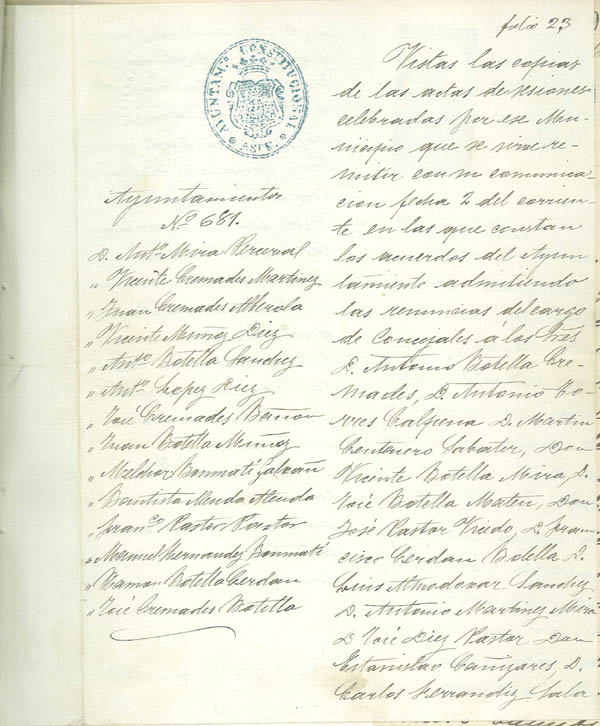 folio 23
AYUNTAM.TO CONSTITUCIONAL
ASPE
Ayuntamientos
Nº 681.
D. Antº Mira Perceval
" Vicente Cremades Martinez
" Juan Cremades Alberola
" Vicente Muñoz Diez
" Antº Botella Sanchez
" Antº Lopez Diez
" José Cremades Bernon
" Juan Botella Muñoz
" Melchor Bonmatí Galvañ
" Bautista Alenda Alenda
" Franco Pastor Pastor
" Manuel Hernandez Bonmatí
" Ramon Botella Cerdan
" José Cremades Botella
Vistas las copias
de las actas de sesiones
celebradas por ese Mu-
nicipio que se sirve re-
mitir con su comunica-
cion fecha 2 del corrien-
te en las que constan
los acuerdos del Ayun
tamiento admitiendo
las renuncias del cargo
de Concejales á los Sres
D. Antonio Botella Cre-
mades, D. Antonio To-
rres Calpena D. Martin
Centenero Sabater, Don
Vicente Botella Mira, D.
José Botella Mateu, Don
José Pastor Viredo, D. Fran-
cisco Cerdan Botella D.
Luis Almodovar Sanchez
D. Antonio Martinez Mira
D José Diez Pastor Don
Estanislao Cañizares, D.
Carlos Herrandiz Sala